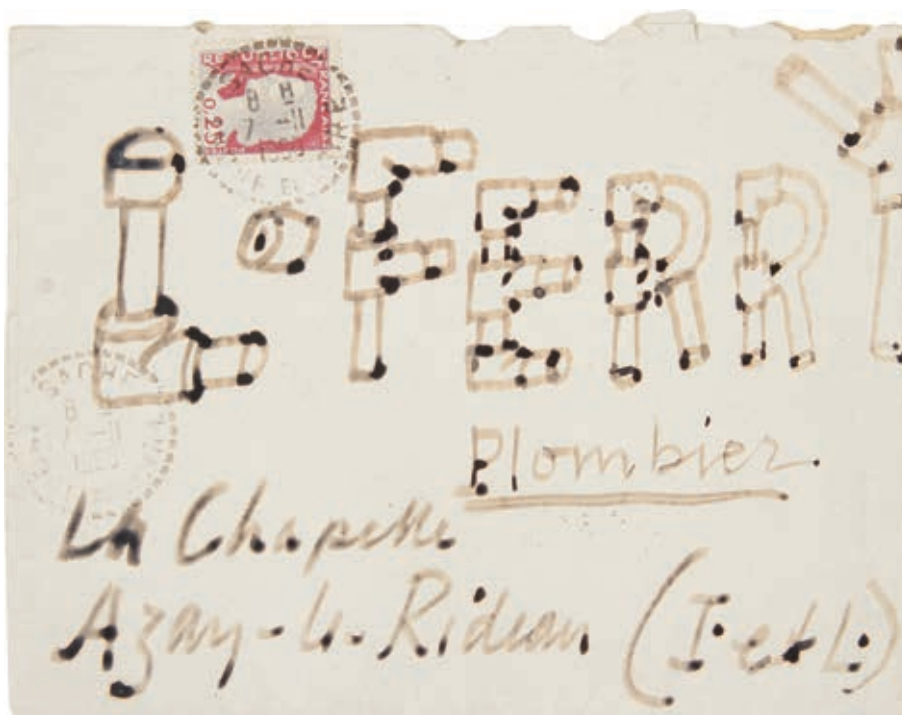 REPUBLIQUE FRANCAISE
0,25
8 H
7 -11
L. FERRY
Plombier.
La Chapelle
Azay-le-Rideau (I et L.)